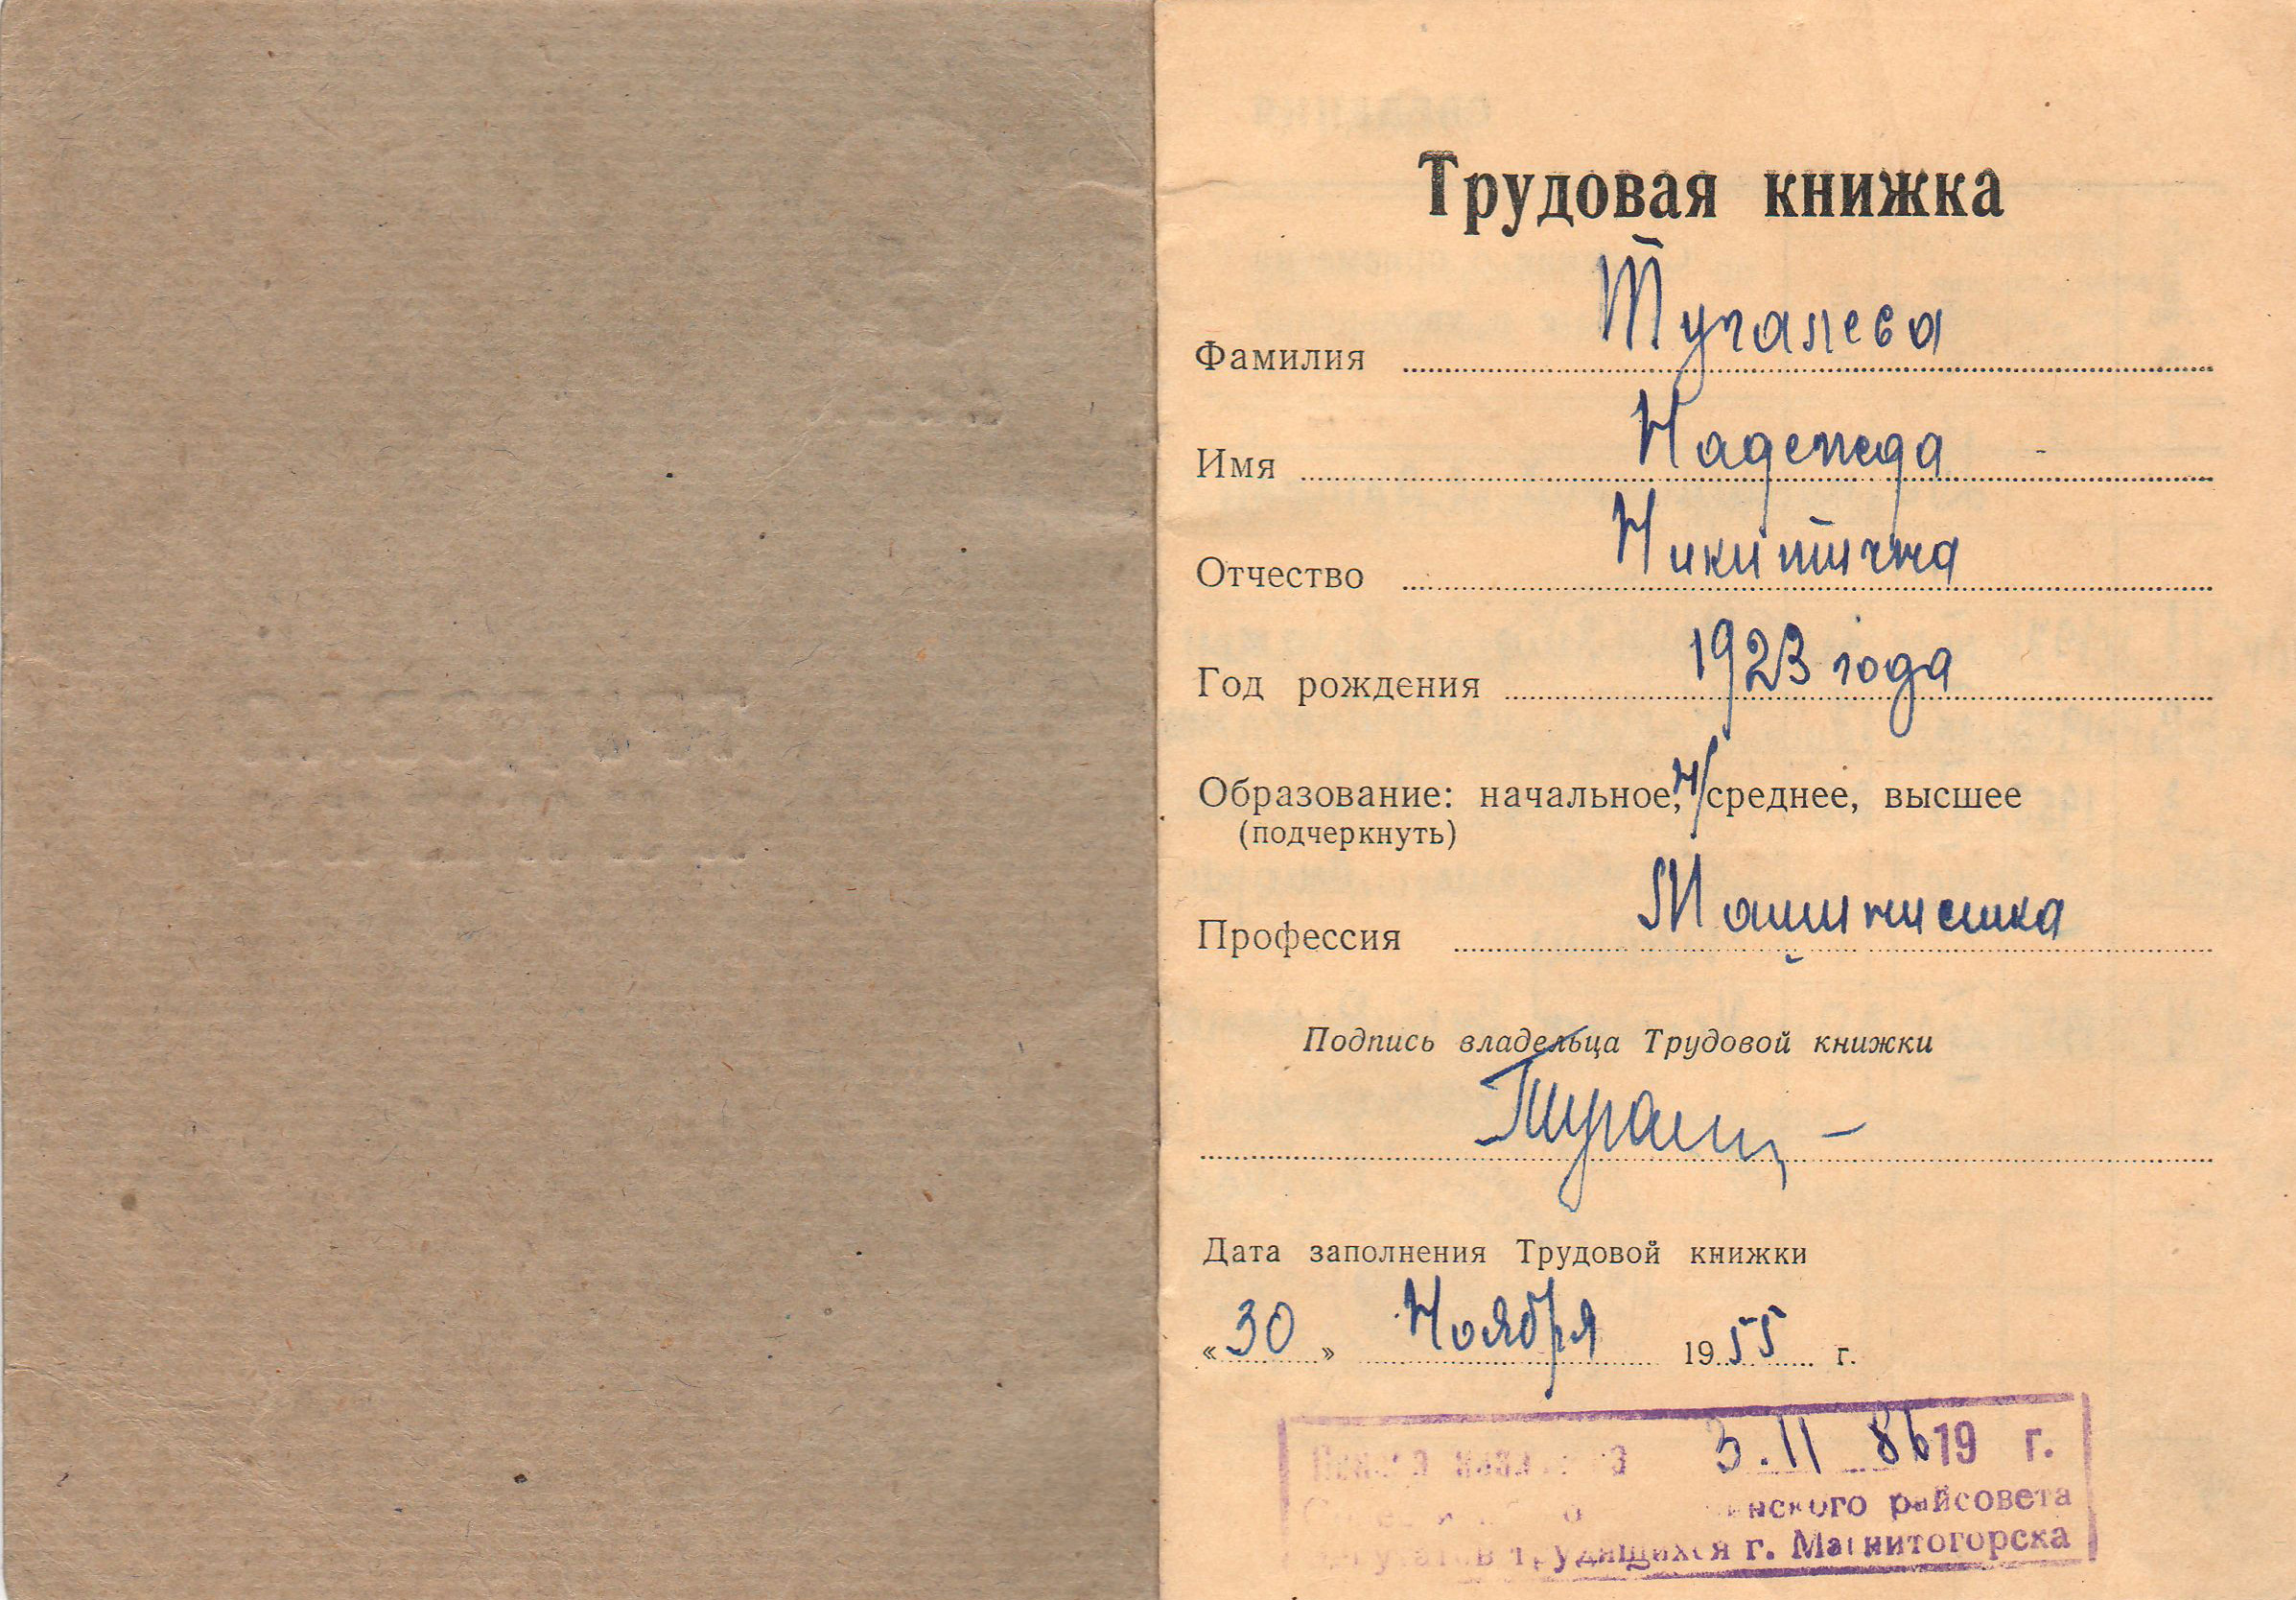 Трудовая книжка
Фамилия Тугалева
Имя Надежда
Отчество Никитична
Год рождения 1923 года
Образование: начальное, н/среднее, высшее
(подчеркнуть)
Профессия Машинистка
Подпись владельца Трудовой книжки
Дата заполнения Трудовой книжки
«30» Ноября 1955 г.
3.11 86 19 г.
райсовета
трудящихся г. Магнитогорска